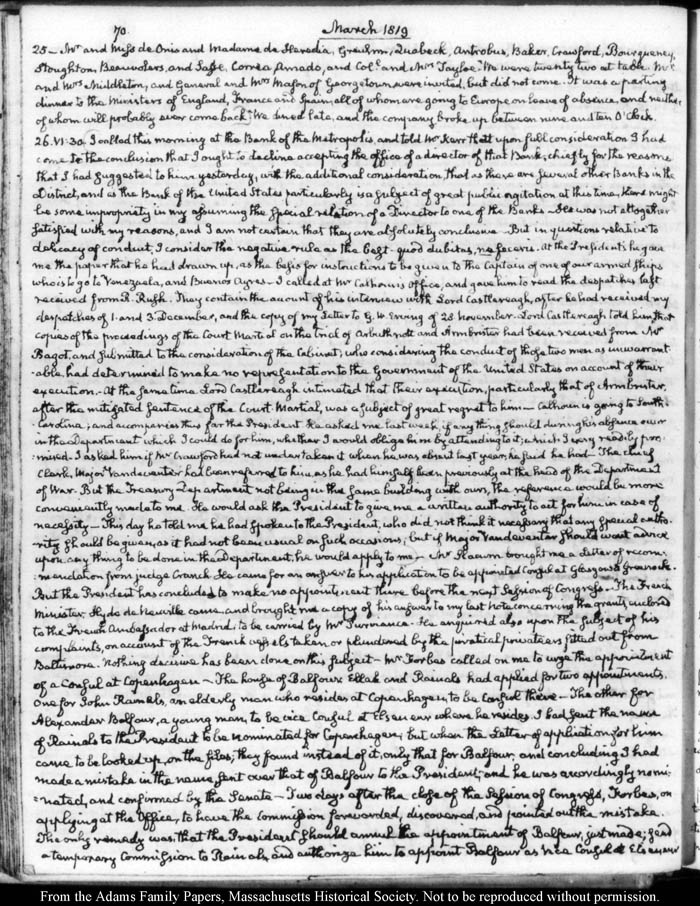 70.
March 1819
25 – Mr. and Miss de Onis and Madame de Heredia, Greuhm, Quabeck, Antrobus, Baker, Crawford, Bourqueney,
Stoughton, Beauvolers, and Correa, Amado, and Coll. and Mrs. Tayloe. We were twenty two at table. Mr.
and Mrs. Middleton, and General and Mrs. Mason of Georgetown were invited, but did not come. It was a parting
dinner to the Ministers of England, France and Spain, all of whom are going to Europe on leave of absence, and neither
of whom will probably ever come back. We dined late, and the company broke up between nine and ten O'Clock.
26. VI:30. I called this morning at the Bank of the Metropolis, and told Mr. Kerr that upon full consideration I had
come to the conclusion that I ought to decline accepting the office of a director of that Bank, chiefly for the reasons
that I had suggested to him yesterday, with the additional consideration, that as there are several other banks in the
District, and as the Bank of the United States particularly is a subject of great public agitation at this time, there might
be some impropriety in my assuming the special relation of a Director to one of the Banks – He was not altogether
satisfied with my reasons, and I am not certain that they are absolutely conclusive – But in questions relative to
delicacy of conduct, I consider the negative rule as the best – quod dubitas, ne feceris. At the President's he gave
me the paper that he had drawn up, as the basis for instructions to be given to the Captain of one of our armed ships
who is to go to Venezuela, and Buenos Ayres – I called at Mr. Calhoun's office, and gave him to read the despatches last
received from R. Rush. They contain the account of his interview with Lord Castlereagh, after he had received my
despatches of 1. and 3. December, and the copy of my letter to G. W. Erving of 28 November. Lord Castlereagh told him that
copies of the proceedings of the Court Martial on the trial of Arbuthnott and Ambrister had been received from Mr.
Bagot, and submitted to the consideration of the Cabinet; who considering the conduct of those two men as unwarrant-
-able, had determined to make no representation to the Government of the United States on account of their
execution. – At the same time Lord Castlereagh intimated that their execution, particularly that of Ambrister,
after the mitigated sentence of the Court Martial, was a subject of great regret to him – Calhoun is going to South-
Carolina; and accompanies thus far the President. He asked me last week, if any thing should during his absence occur
in the Department which I could do for him, whether I would oblige him by attending to it; which I very readily pro-
mised. I asked him if Mr. Crawford had not undertaken it when he was absent last year; he said he had – The chief
Clerk, Major Vandeventer had been referred to him, as he had himself been previously at the head of the Department
of War. But the Treasury Department not being in the same building with ours, the reference would be more
conveniently made to me. He would ask the President to give me a written authority to act for him in case of
necessity – This day he told me he had spoken to the President, who did not think it necessary that any special autho-
rity should be given, as it had not been usual on such occasions; but if Major Vandeventer should want advice
upon any thing to be done in the Department, he would apply to me – Mr. brought me a letter of recom-
mendation from judge Cranch. He came for an answer to his application to be appointed Consul at Glasgow & Greenock.
But the President has concluded to make no appointment there before the next Session of Congress. – The French
Minister, Hyde de Neuville came, and brought me a copy of his answer to my last note concerning the grants, enclosed
to the French Ambassador at Madrid; to be carried by Mr. Purviance. He enquired also upon the subject of his
complaints, on account of the French vessels taken or plundered by the piratical privateers fitted out from
Baltimore. Nothing decisive has been done on this subject – Mr. Forbes called on me to urge the appointment
of a Consul at Copenhagen – The house of Balfour, Ellah and Rainals had applied for two appointments.
One for John Rainals, an elderly man who resides at Copenhagen, to be Consul there – The other for
Alexander Balfour, a young man, to be vice Consul at Elseneur where he resides. I had sent the name
of Rainals to the President to be nominated for Copenhagen; but when the Letter of application for him
came to be looked up, on the files, they found instead of it, only that for Balfour, and concluding I had
made a mistake in the name sent over that of Balfour to the President, and he was accordingly nomi-
=nated, and confirmed by the Senate – Two days after the close of the Session of Congress, Forbes, on
applying at the Office, to have the Commission forwarded, discovered, and pointed out the mistake.
The only remedy was that the President should annul the appointment of Balfour, just made; send
a temporary Commission to Rainals, and authorize him to appoint Balfour as Vice Consul at Elseneur
From the Adams Family Papers, Massachusetts Historical Society. Not to be reproduced without permission.